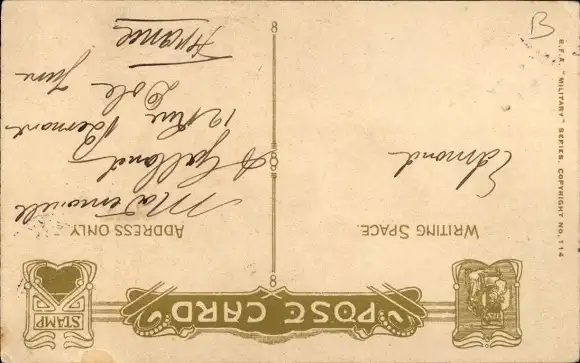 POST CARD
STAMP
WRITING SPACE.
ADDRESS ONLY
Edmond
Mademoiselle
A Galland
12 Rue Bernard
Dole Jura
France
E.F.A. "MILITARY" SERIES. COPYRIGHT NO. 114
B